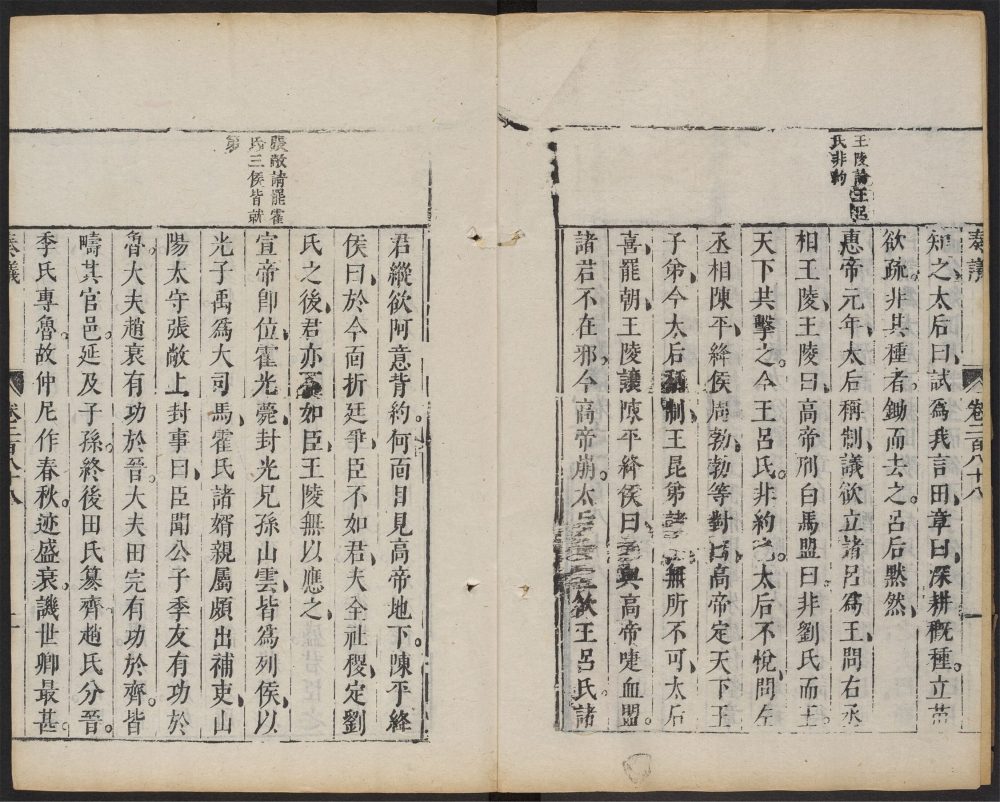 王陵論王呂
氏非約
奏議
卷二百八十八
一
知之太后曰試為我言田章曰深耕穊種立苗
欲疏非其種者鋤而去之呂后默然
惠帝元年太后稱制議欲立諸呂為王問右丞
相王陵王陵曰高帝刑白馬盟曰非劉氏而王
天下共擊之今王呂氏非約也太后不悅問左
丞相陳平絳侯周勃勃等對曰高帝定天下王
子弟今太后稱制王昆弟諸呂無所不可太后
喜罷朝王陵讓陳平絳侯曰與高帝啑血盟
諸君不在邪今高帝崩太后欲王呂氏諸
張敞請罷霍
氏三侯皆就
第
君縱欲阿意背約何面目見高帝地下陳平絳
侯曰於今面折廷爭臣不如君夫全社稷定劉
氏之後君亦不如臣王陵無以應之
宣帝即位霍光薨封光兄孫山雲皆為列侯以
光子禹為大司馬霍氏諸婿親屬頗出補吏山
陽太守張敞上封事曰臣聞公子季友有功於
魯大夫趙衰有功於晉大夫田完有功於齊皆
疇其官邑延及子孫終後田氏篡齊趙氏分晉
季氏專魯故仲尼作春秋迹盛衰譏世卿最甚
奏議
卷二百八十八